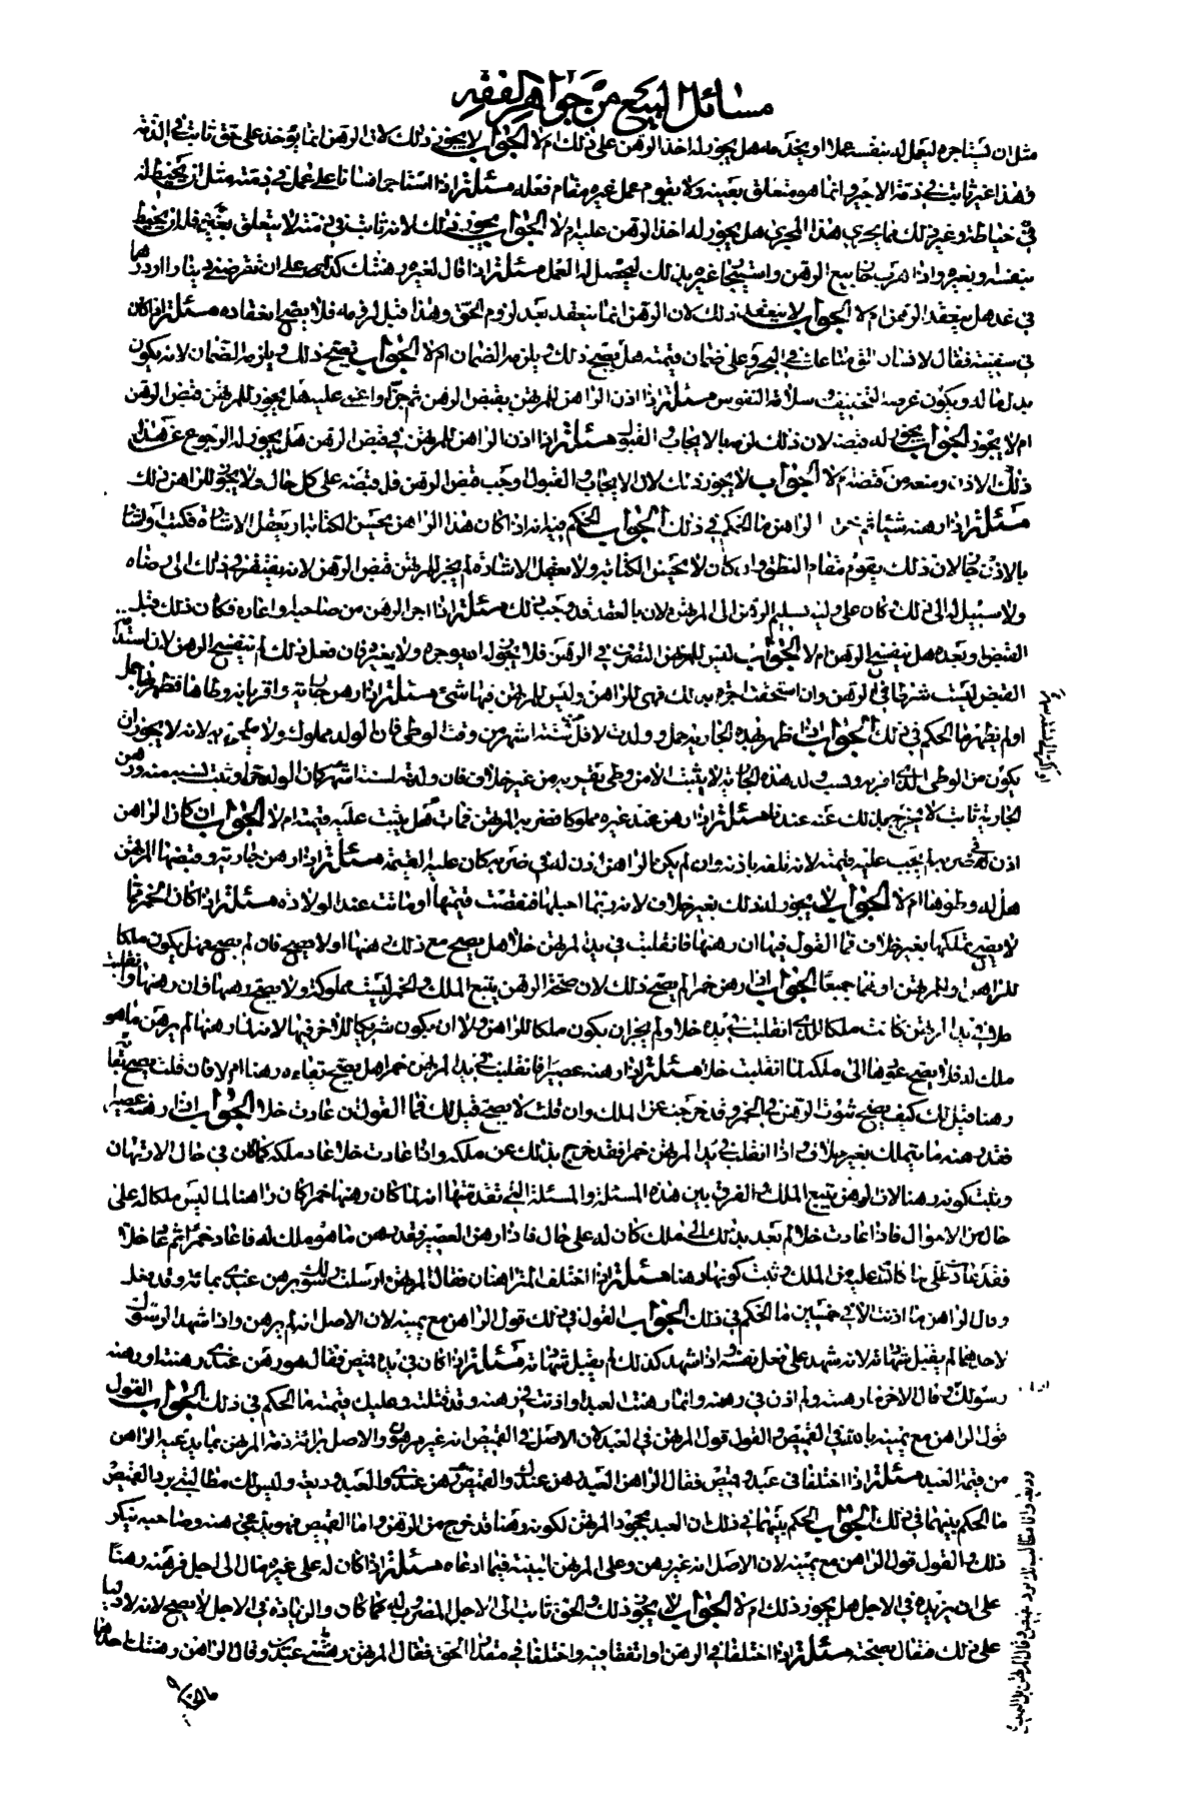 مسائل البيع من جواهر الفقه
مثل ان يستاجره ليعمل له بنفسه عملا او يخدمه هل يجوز له اخذ الرهن على ذلك ام لا الجواب لا يجوز ذلك لان الرهن انما يوخذ على حق ثابت في الذمة
وهذا غير ثابت في ذمة الاجير وانما هو متعلق بعينه ولا يقوم عمل غيره مقام فعله مسئلة اذا استاجر انسانا على عمل في ذمته مثل ان يحيط له
خياطة وغير ذلك مما يجري هذا المجرى هل يجوز له اخذ الرهن عليه ام لا الجواب يجوز ذلك لانه ثابت في ذمته لا يتعلق بعينه فله ان يخيط
بنفسه وبغيره واذا هرب جاز بيع الرهن واستيجار غيره بذلك ليحصل له العمل مسئلة اذا قال لغيره رهنتك كذا على ان تقرضني دينارا او درهما
في غد هل ينعقد الرهن ام لا الجواب لا ينعقد ذلك لان الرهن انما ينعقد بعد لزوم الحق وهذا قبل لزومه فلا يصح انعقاده مسئلة اذا كان
في سفينة فقال لانسان الق متاعك في البحر وعلى ضمان قيمته هل يصح ذلك ويلزمه الضمان ام لا الجواب يصح ذلك ويلزمه الضمان لانه يكون
بدل ماله ويكون غرضه التخفيف وسلامة النفوس مسئلة اذا اذن الراهن للمرتهن بقبض الرهن ثم جن او اغمي عليه هل يجوز للمرتهن قبض الرهن
ام لا يجوز الجواب يجوز له قبضه لان ذلك لزم بالايجاب والقبول مسئلة اذا اذن الراهن للمرتهن في قبض الرهن هل يجوز له الرجوع عن هذا
ذلك الاذن ومنعه من قبضه ام لا الجواب لا يجوز ذلك لان الايجاب والقبول وجب قبض الرهن فله قبضه على كل حال ولا يجوز للراهن ذلك
مسئلة اذا رهنه شيئا ثم خرس الراهن ما الحكم في ذلك الجواب الحكم فيه انه اذا كان هذا الراهن يحسن الكتابة او يعقل الاشارة فكتب او اشار
بالاذن جاز لان ذلك يقوم مقام النطق وان كان لا يحسن الكتابة ولا يعقل الاشارة لم يجز للمرتهن قبض الرهن لانه يفتقر في ذلك الى رضاه
ولا سبيل له الى ذلك وكان على وليه تسليم الرهن الى المرتهن لان بالعقد قد وجب ذلك مسئلة اذا اجر الرهن من صاحبه او اعاره فكان ذلك قبل
القبض او بعده هل ينفسخ الرهن ام لا الجواب ليس للمرتهن التصرف في الرهن فلا يجوز له ان يوجره ولا يعيره فان فعل ذلك لم ينفسخ الرهن لان استدامة
القبض ليست شرطا في الرهن وان استحقت اجرة بذلك فهي للراهن وليس للمرتهن فيها شئ مسئلة اذا رهن جارية واقر بانه وطاها فظهر بها حمل
او لم يظهر ما الحكم في ذلك الجواب ان ظهر بهذه الجارية حمل وولدت لاقل من ستة اشهر من وقت الوطي فان الولد مملوك ولا يلحق به لانه لا يجوز ان
يكون من الوطي الذي اقر به ونسب ولد هذه الجارية لا يثبت الا من وطي يقر به من غير خلاف فان ولدته لستة اشهر كان الولد حرا وثبت نسبه منه ورهن
الجارية ثابت لا يخرج بذلك عنه عندنا مسئلة اذا رهن عند غيره مملوكا فضربه المرتهن فمات هل يثبت عليه قيمته ام لا الجواب ان كان الراهن
اذن له في ضربه لم يجب عليه قيمته لانه تلفه باذنه وان لم يكن الراهن اذن له في ضربه كان عليه القيمة مسئلة اذا رهن جارية وقبضها المرتهن
هل له وطؤها ام لا الجواب لا يجوز له ذلك بغير خلاف لانه ربما احبلها فنقصت قيمتها او ماتت عند الولادة مسئلة اذا كان الخمر مما
لا يصح تملكها بغير خلاف فما القول فيها ان رهنها فانقلبت في يد المرتهن خلا هل يصح مع ذلك رهنها او لا يصح فان لم يصح فهل يكون ملكا
للراهن او للمرتهن او لهما جميعا الجواب اذا رهن خمرا لم يصح ذلك لان صحة الرهن يتبع الملك والخمر ليست مملوكة ولا يصح رهنها فان رهنها وانقلبت
ملك له فلا يصح عودها الى ملكه لما انقلبت خلا مسئلة اذا رهنه عصيرا فانقلب في يد المرتهن خمرا هل يصح بقاءه رهنا ام لا فان قلت يصح بقاءه
رهنا قيل لك كيف يصح ثبوت الرهن في الخمر وقد خرجت عن الملك وان قلت لا يصح قيل لك فما القول ان عادت خلا الجواب اذا رهنه عصيرا
فقد رهنه ما يتملك بغير خلاف واذا انقلب في يد المرتهن خمرا فقد خرج بذلك عن ملكه واذا عادت خلا عاد ملكه كما كان في حال الارتهان
وثبت كونه رهنا لان الرهن يتبع الملك والفرق بين هذه المسئلة والمسئلة التي تقدمتها انه لما كان رهنها خمرا كان راهنا لما ليس ملكا له على
حال من الاموال فاذا عادت خلا لم تعد بذلك الى ملك كان له على حال فاذا رهن العصير فقد رهن ما هو ملك له فاذا عاد خمرا ثم عاد خلا
فقد عادت على ما كانت عليه في الملك وثبت كونها رهنا مسئلة اذا اختلف المتراهنان فقال المرتهن ارسلت رسولك ليرهن عندي بمائة وقد فعل
وقال الراهن ما اذنت الا في خمسين ما الحكم في ذلك الجواب القول في ذلك قول الراهن مع يمينه لان الاصل انه لم يرهن واذا شهد الرسول
لاحدهما لم يقبل شهادته لانه شهد على فعل نفسه واذا شهد كذلك لم يقبل شهادته مسئلة اذا كان في يده قميص فقال هو رهن عندي رهنته او رهنه
رسولك وقال الاخر ما رهنته ولم اذن في رهنه وانما رهنت العبد او اذنت في رهنه وقد قتلته وعليك قيمته ما الحكم في ذلك الجواب القول
قول الراهن مع يمينه بالله في القميص والقول قول المرتهن في العبد لان الاصل في القميص انه غير مرهون والاصل برائة ذمة المرتهن مما يدعيه الراهن
من قيمة العبد مسئلة اذا اختلفا في عبد وقميص فقال الراهن العبد رهن عندك والقميص رهن عندي والعبد وديعة وليس لك مطالبتي برد القميص
ما الحكم بينهما في ذلك الجواب الحكم بينهما في ذلك ان العبد بجحود المرتهن لكونه رهنا قد خرج من الرهن واما القميص فهو يدعي رهنه وصاحبه ينكر
ذلك والقول قول الراهن مع يمينه لان الاصل انه غير رهن وعلى المرتهن البينة فيما ادعاه مسئلة اذا كان له على غيره مال الى اجل فرهنه رهنا
على ان يزيده في الاجل هل يجوز ذلك ام لا الجواب لا يجوز ذلك والحق ثابت الى الاجل المضروب له كما كان والزيادة في الاجل لا يصح لانه لا دليل
على ذلك فقال بصحته مسئلة اذا اختلفا في الرهن او اتفقا فيه واختلفا في مقدار الحق فقال المرتهن رهنتني عبدك وقال الراهن رهنتك احدهما